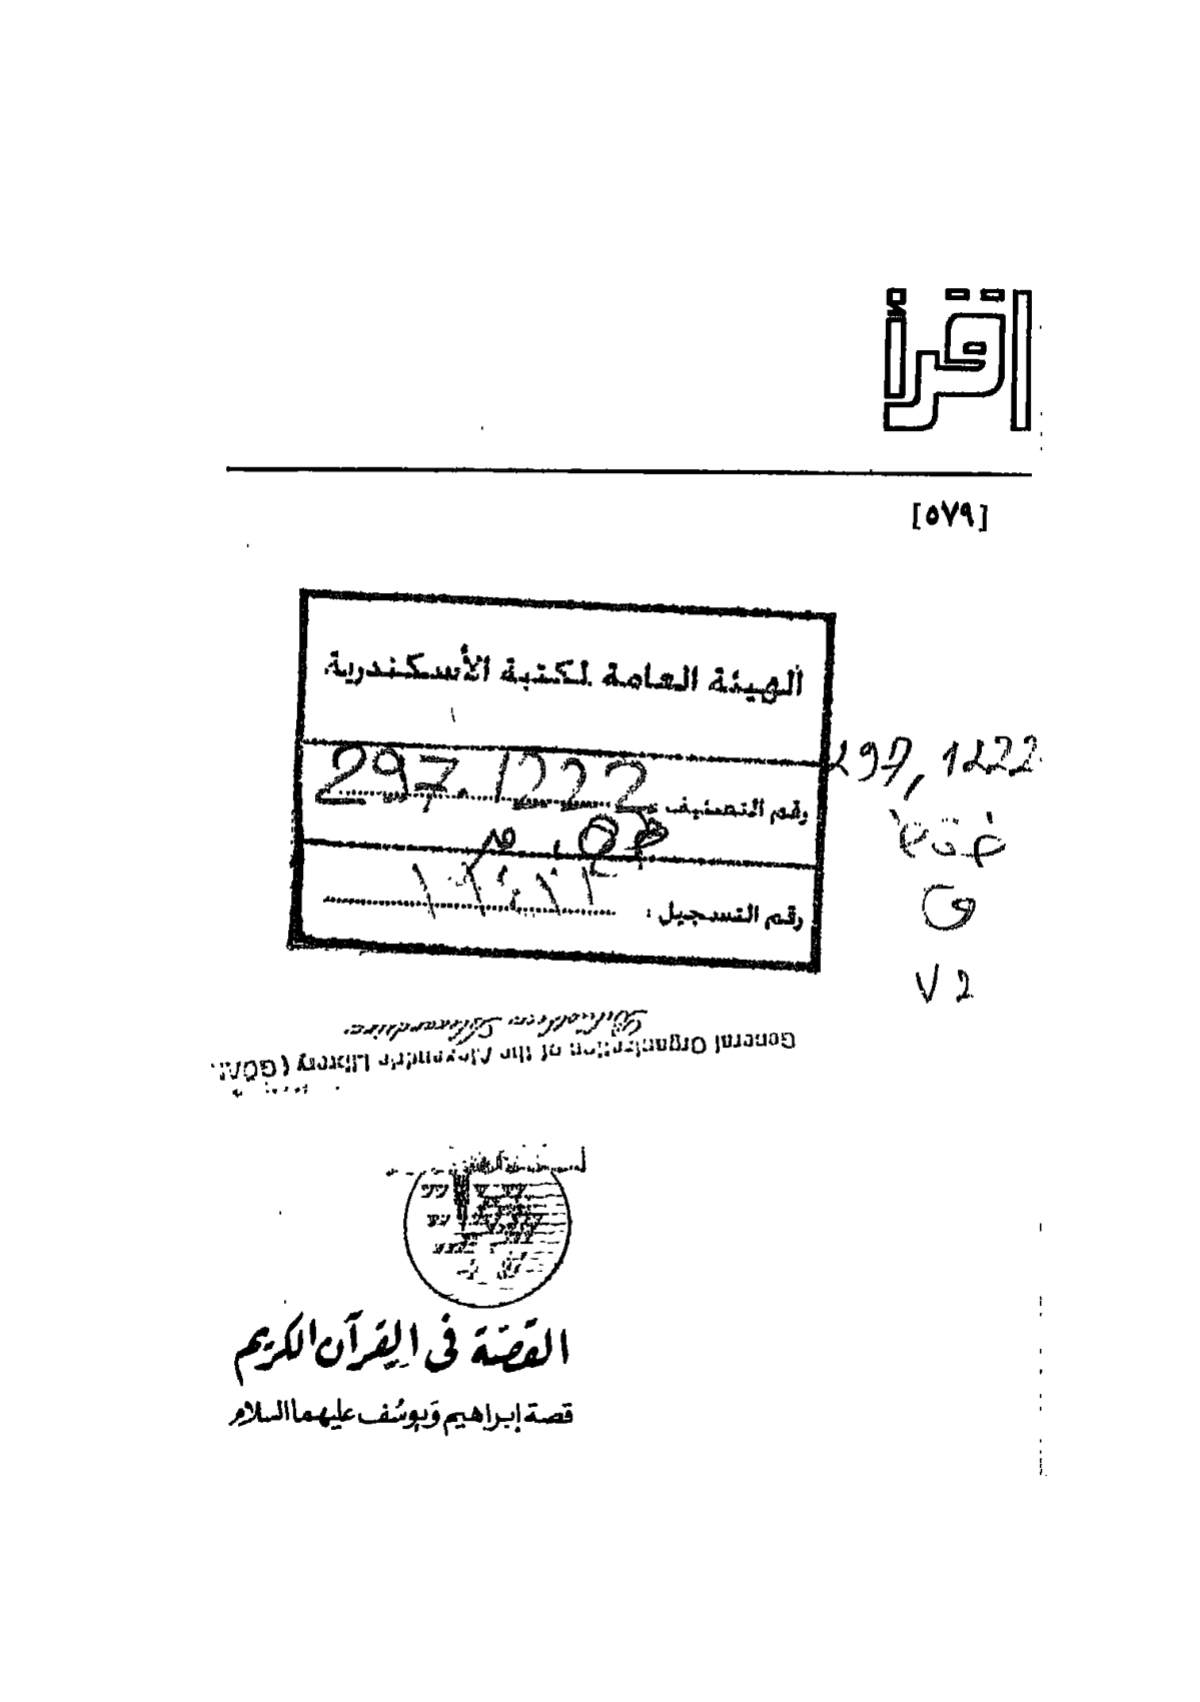 اقرأ
[٥٧٩]
الهيئة العامة لمكتبة الأسكندرية
رقم التصنيف 297.1222
رقم التسجيل :
297,1222
V2
General Organization of the Alexandria Library (GOAL
Bibliotheca Alexandrina
القصّة في القرآن الكريم
قصة إبراهيم ويوسُف عليهما السلام